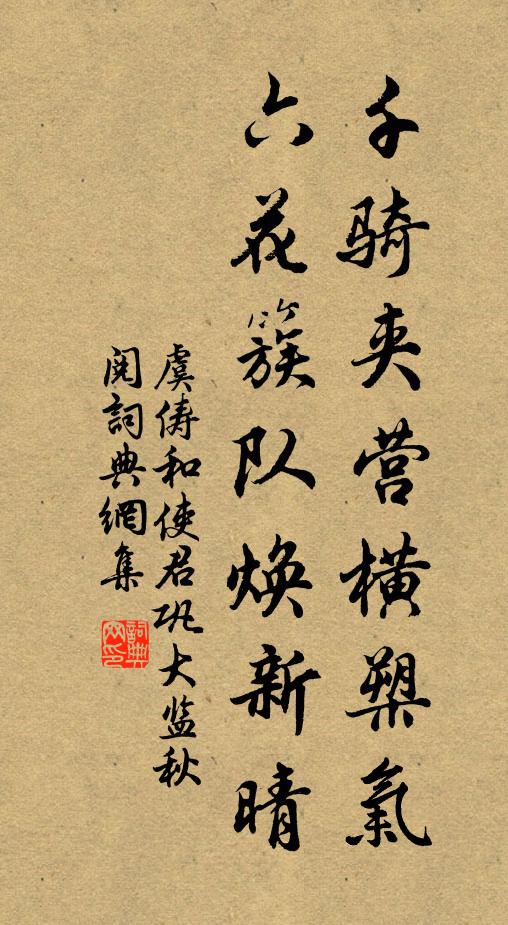 千骑夹营横槊氣
六花簇队焕新晴
虞俦和使君巩大监秋
閱詞典網集
詞典網印